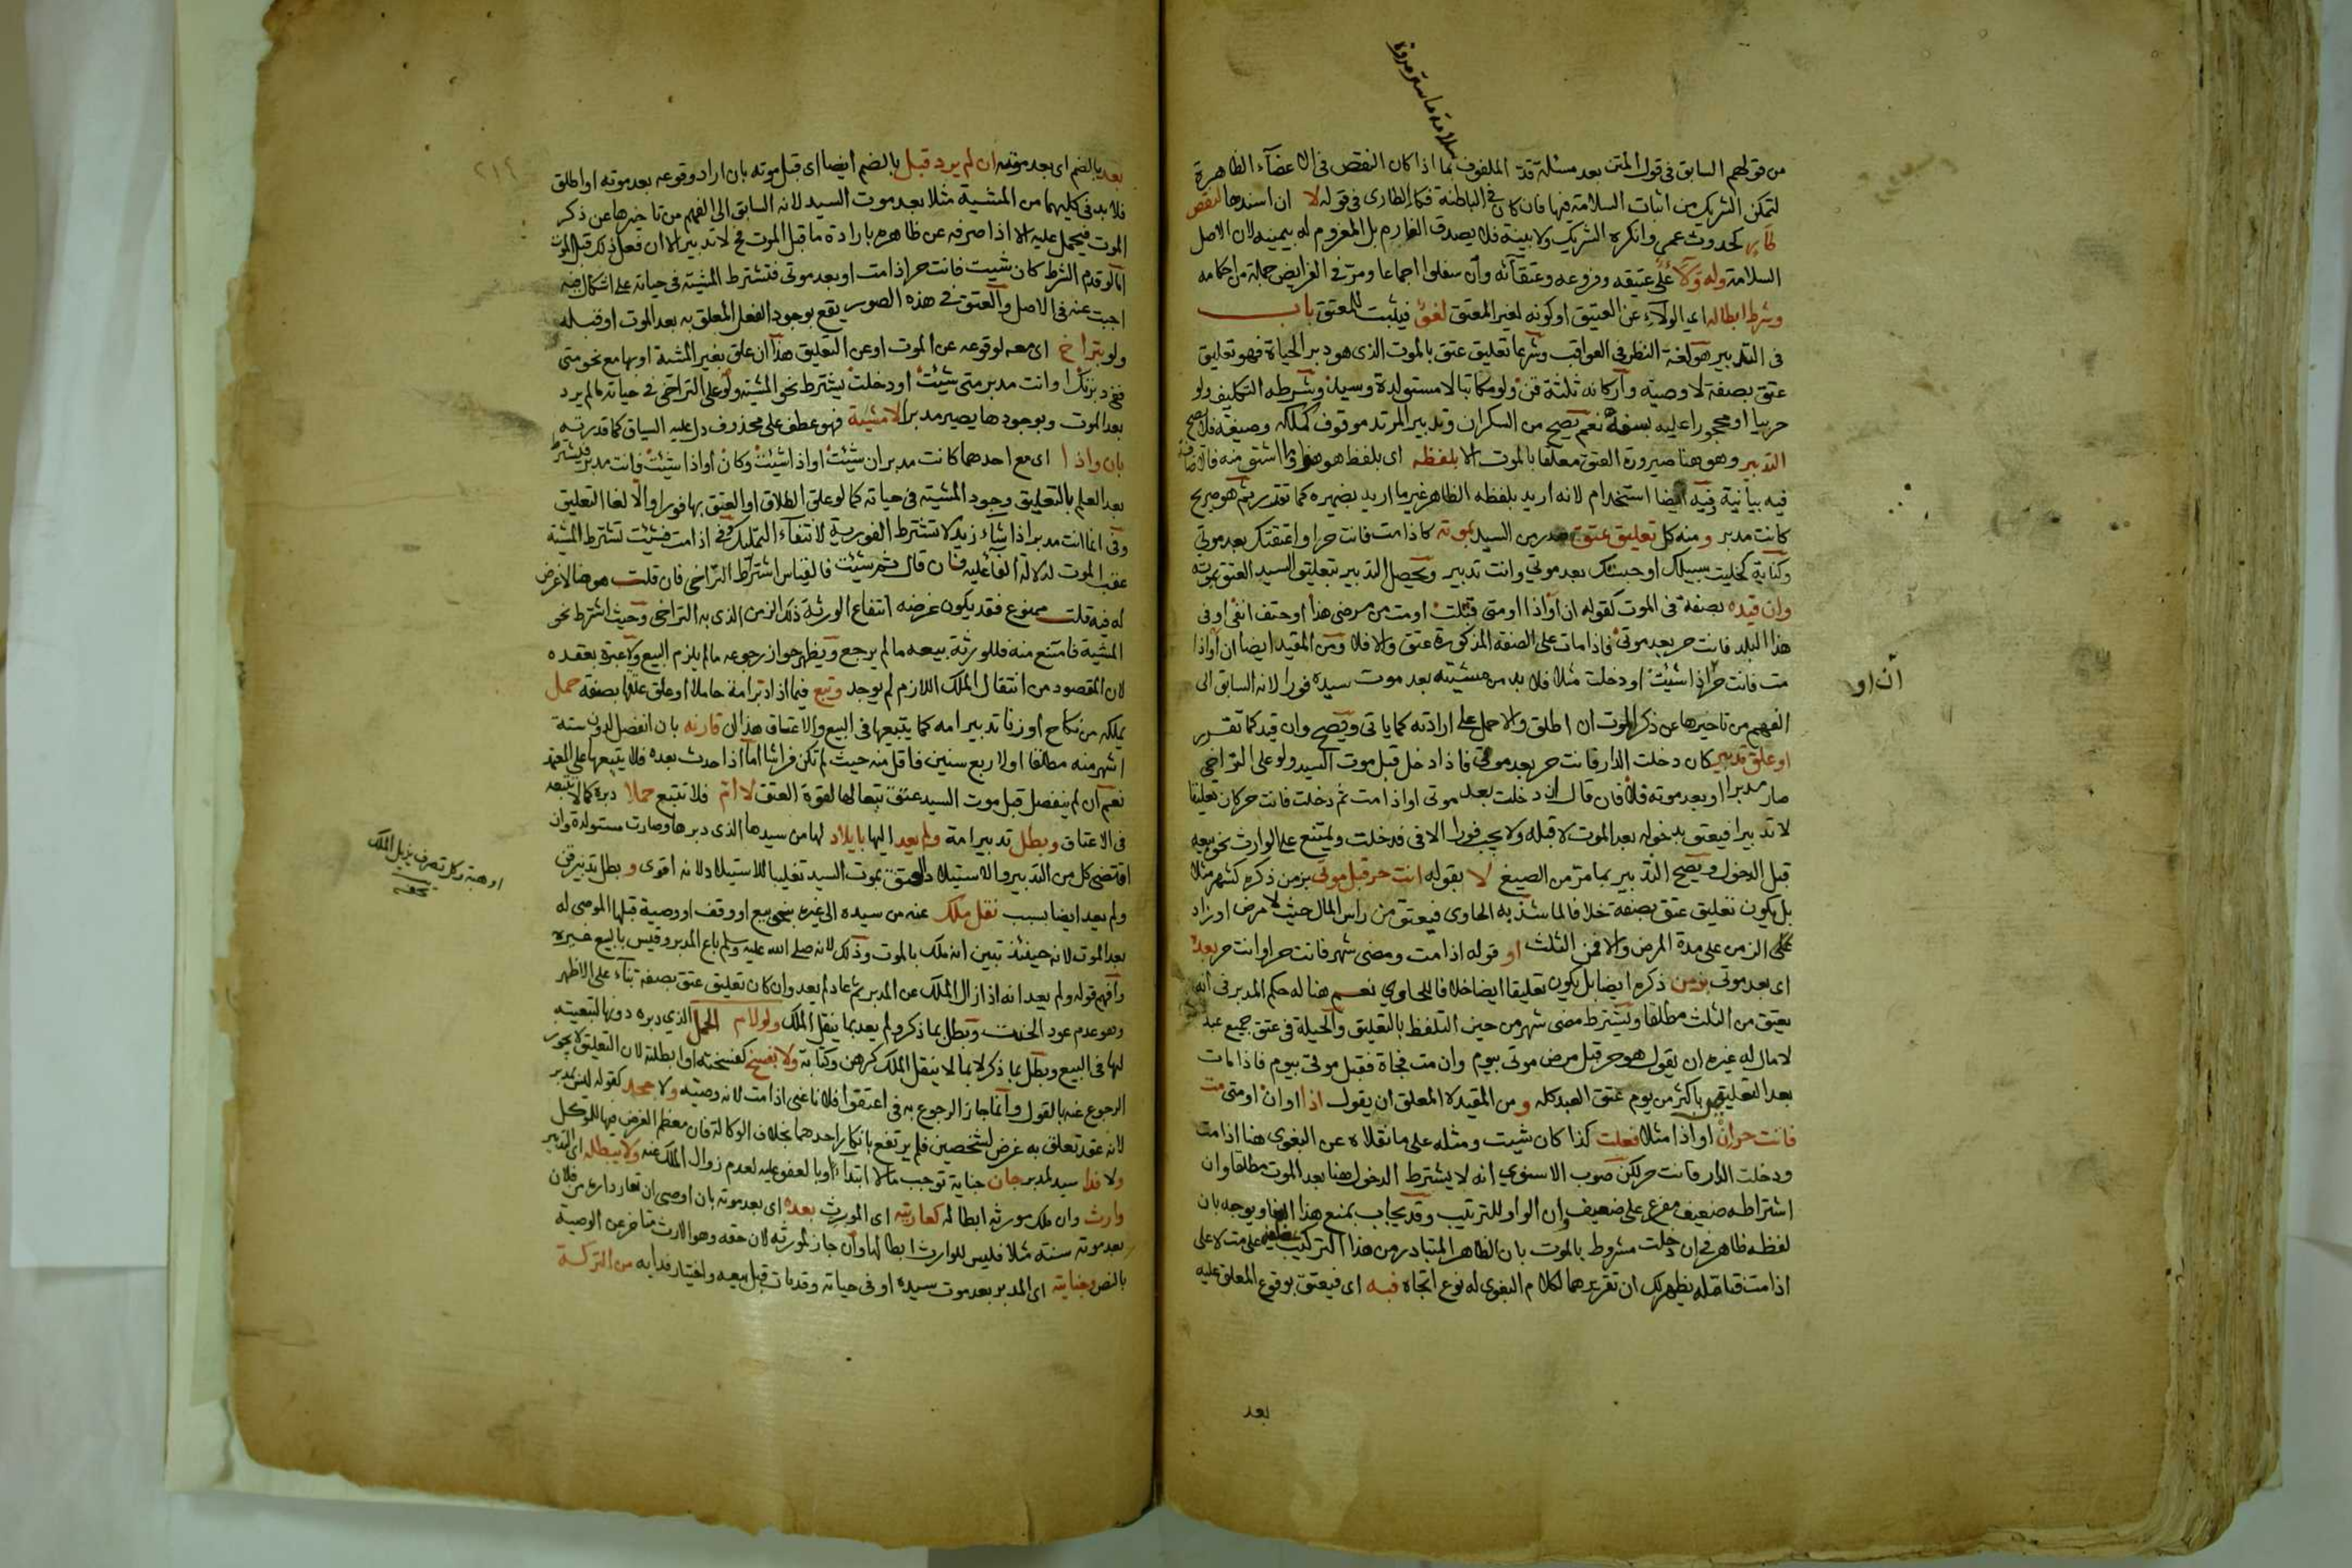 من قولهم السابق في قول المتن بعد مسئلة قدّ الملفوف بما اذا كان النقص في الاعضآء الظاهرة
سلامة ما ستر مروة
لتمكن الشريك من اثبات السلامة فيها فان كان في الباطنة فكالطارى في قوله لا ان اسندها لنقص
طار كحدوث عمى وانكره الشريك ولا بينة فلا يصدق الغارم بل المغروم له بيمينه لان الاصل
السلامة وله ولآ على عتيقه وفروعه وعتقآئه وان سفلوا اجماعا ومر في الفرايض جملة من احكامه
وشرط ابطاله اي الولآء عن العتيق او كونه لغير المعتق لغو فيثبت للمعتق باب
في التدبير هو لغة النظر في العواقب وشرعا تعليق عتق بالموت الذي هو دبر الحياة فهو تعليق
عتق بصفة لا وصية واركانه ثلثة قن ولو مكاتبا لا مستولدة وسيد وشرطه التكليف ولو
حربيا او محجورا عليه بسفه نعم يصح من السكران وتدبير المرتد موقوف كملكه وصيغة فلا يصح
التدبير وهو هنا صيرورة العتق معلقا بالموت الا بلفظه اي بلفظ هو هو او ما اشتق منه فالاضافة
فيه بيانية وفيه ايضا استخدام لانه اريد بلفظه الظاهر غير ما اريد بضميره كما تقدر ثم هو صريح
كانت مدبر ومنه كل تعليق عتق صدر من السيد بموته كاذا مت فانت حر او اعتقتك بعد موتي
وكناية كخليت سبيلك او حبستك بعد موتي وانت تدبير ويحصل التدبير بتعليق السيد العتق بموته
وان قيده بصفة في الموت كقوله ان او اذا او متى قتلت او مت من مرضى هذا او حتف انفى او في
هذا البلد فانت حر بعد موتى فاذا مات على الصفة المذكورة عتق والا فلا ومن المقيد ايضا ان او اذا
مت فانت حر اذا شئت او دخلت مثلا فلا بد من مشيته بعد موت سيده فورا لانه السابق الى
ان او
الفهم من تاخيرها عن ذكر الموت ان اطلق والا حمل على ارادته كما ياتى ويصح وان قيد كما تقرر
او علق تدبير كان دخلت الدار فانت حر بعد موتى فاذا دخل قبل موت السيد ولو على التراخي
صار مدبرا او بعد موته فلا فان قال ان دخلت بعد موتى او اذا مت ثم دخلت فانت حر كان تعليقا
لا تدبيرا فيعتق بدخوله بعد الموت لا قبله ولا يجب فورا الا في فدخلت ويمتنع على الوارث نحو بيعه
قبل الدخول ويصح التدبير بما مر من الصيغ لا بقوله انت حر قبل موتى بزمن ذكره كشهر مثلا
بل يكون تعليق عتق بصفة خلافا لما شذ به الحاوى فيعتق من راس المال حيث لا مرض او زاد
على الزمن على مدة المرض والا فمن الثلث او قوله اذا مت ومضى شهر فانت حر او انت حر بعد
اى بعد موتى بزمن ذكره ايضا بل يكون تعليقا ايضا خلافا للحاوي نعم هنا له حكم المدبر في انه
يعتق من الثلث مطلقا ويشترط مضى شهر من حين التلفظ بالتعليق والحيلة في عتق جميع عبد
لا مال له غيره ان يقول هو حر قبل مرض موتى بيوم وان مت فجاة فقبل موتى بيوم فاذا مات
بعد التعليق باكثر من يوم عتق العبد كله ومن المقيد لا المعلق ان يقول اذا او ان او متى مت
فانت حر ان او اذا مثلا فعلت كذا كان شيت ومثله على ما نقلاه عن البغوى هنا اذا مت
ودخلت الدار فانت حر لكن صوب الاسنوي انه لا يشترط الدخول هنا بعد الموت مطلقا وان
اشتراطه ضعيف مفرع على ضعيف وان الواو للترتيب وقد يجاب بمنع هذا البنا ويوجه بان
لفظه ظاهر في ان دخلت مشروط بالموت بان الظاهر المتبادر من هذا التركيب عطفه على مت لا على
اذا مت فتامله يظهر لك ان تقريرهما لكلام البغوى له نوع اتجاه فبه اى فيعتق بوقوع المعلق عليه
بعد
٢١٤
بعد بالضم اى بعد موته ان لم يرد قبل بالضم ايضا اى قبل موته بان اراد وقوعه بعد موته او اطلق
فلا بد في كليهما من المشية مثلا بعد موت السيد لانه السابق الى الفهم من تاخيرها عن ذكر
الموت فيحمل عليه الا اذا صرفه عن ظاهره بارادة ما قبل الموت فح لا تدبير الا ان فعل ذلك قبل الموت
اما لو قدم الشرط كان شيت فانت حر اذا مت او بعد موتى فتشترط المشية في حياته على اشكال فيه
اجبت عنه في الاصل والعتق في هذه الصور يقع بوجود الفعل المعلق به بعد الموت او قبله
ولو بتراخ اى معه لوقوعه عن الموت او عن التعليق هذا ان علق بغير المشية او بها مع نحو متى
ففي دبرتك او انت مدبر متى شئت او دخلت يشترط نحو المشية ولو على التراخى في حياته مالم يرد
بعد الموت وبوجودها يصير مدبرا لا مشية فهو عطف على محذوف دل عليه السياق كما قدرته
بان واذا اى مع احدهما كانت مدبر ان شئت او اذا شئت وكان او اذا شئت فانت مدبر فيشترط
بعد العلم بالتعليق وجود المشية في حياته كما لو علق الطلاق او العتق بها فورا والا لغا التعليق
وفي انما انت مدبر اذا شاء زيد لا تشترط الفورية لانتفاء التمليك وفي اذا مت فشئت تشترط المشية
عقب الموت لدلالة الفا عليه فان قال ثم شئت فالقياس اشتراط التراخى فان قلت هو ضا لا غرض
له فيه قلت ممنوع فقد يكون غرضه انتفاع الورثة ذلك الزمن الذى به التراخى وحيث اشترط نحو
المشية فامتنع منه فللورثة بيعه مالم يرجع ويظهر جواز رجوعه مالم يلزم البيع ولا عبرة بعقده
لان المقصود من انتقال الملك اللازم لم يوجد وتبع فيما اذا دبر امة حاملا او علق عتقها بصفة حمل
يملكه من نكاح او زنا تدبير امه كما يتبعها في البيع والاعتاق هذا ان قارنه بان انفصل لدون ستة
اشهر منه مطلقا او لاربع سنين فاقل منه حيث لم تكن فراشا اما اذا حدث بعده فلا يتبعها على المعتمد
نعم ان لم ينفصل قبل موت السيد عتق تبعا لها لقوة العتق لا ام فلا تتبع حملا دبره كما لا تتبعه
في الاعتاق وبطل تدبير امة ولم يعد اليها بايلاد لها من سيدها الذى دبرها وصارت مستولدة وان
اقتضى كل من التدبير والاستيلاد العتق بموت السيد تغليبا للاستيلاد لانه اقوى وبطل تدبير قن
او هبة وكل تصرف يزيل الملك
تحفه
ولم يعد ايضا بسبب نقل ملك عنه من سيده الى غيره بنحو بيع او وقف او وصية قبلها الموصى له
بعد الموت لانه حينئذ تبين انه ملك بالموت وذلك لانه صلى الله عليه وسلم باع المدبر وقيس بالبيع غيره
وافهم قوله ولم يعد انه اذا زال الملك عن المدبر ثم عاد لم يعد وان كان تعليق عتق بصفة بنآء على الاظهر
وهو عدم عود الحنث وبطل بما ذكر ولم يعد بما ينقل الملك ولو لام الحمل الذي دبره دونها لتبعيته
لها في البيع وبطل بما ذكر لا بما لا ينقل الملك كرهن وكتابة ولا بفسخ كفسخته او ابطلته لان التعليق لا يجوز
الرجوع عنه بالقول وانما جاز الرجوع به في اعتقوا فلانا عنى اذا مت لانه وصية ولا جحد كقوله ليس بمدبر
لانه عقد تعلق به غرض لشخصين فلم يرتفع بانكار احدهما بخلاف الوكالة فان معظم الغرض فيها للموكل
ولا فدا سيد لمدبر جان جناية توجب مالا ابتداء او بالعفو عليه لعدم زوال الملك عنه ولا يبطله اى التدبير
وارث وان ملك مورثه ابطاله كعاريته اى المورث بعده اى بعد موته بان اوصى ان تعار داره من فلان
بعد موته سنة مثلا فليس للوارث ابطالها وان جاز لمورثه لان حقه وهو الارث متاخر عن الوصية
بالنص وجناية اى المدبر بعد موت سيده او في حياته وقد مات قبل بيعه واختيار فدايه من التركة